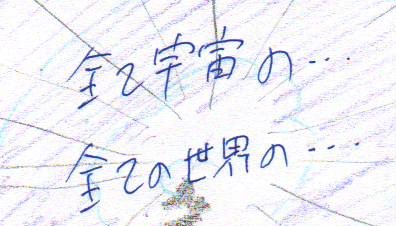 全て宇宙の…
全ての世界の…